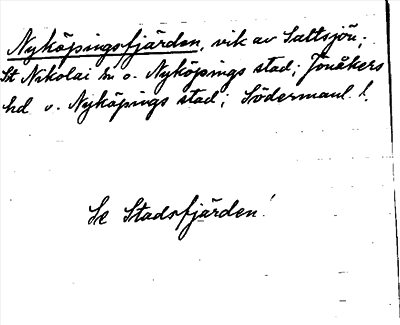 Nyköpingsfjärden, vik av Saltsjön;
St Nikolai sn o. Nyköpings stad; Jönåkers
hd o. Nyköpings stad; Södermanl. l.
Se Stadsfjärden!